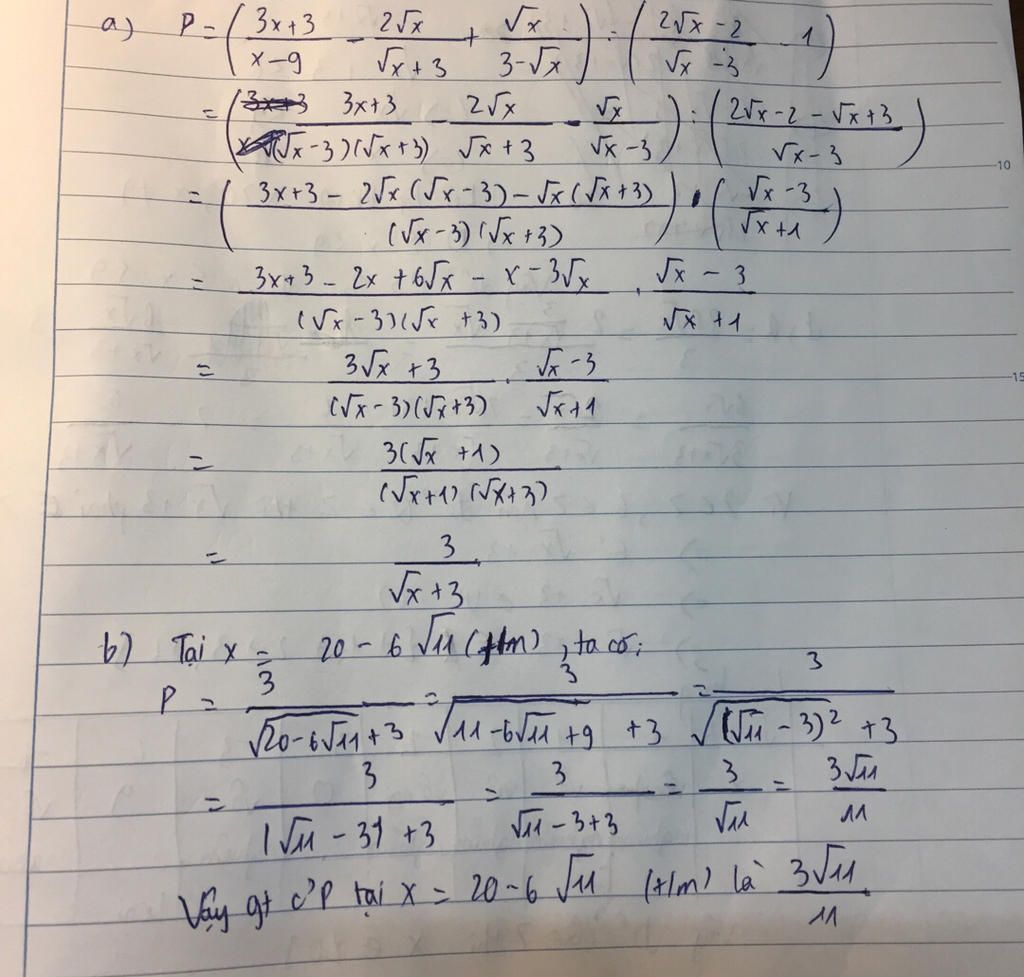 a) P = ( (3x+3)/(x-9) - 2√x/(√x+3) + √x/(3-√x) ) : ( (2√x-2)/(√x-3) - 1 )
= ( (3x+3)/((√x-3)(√x+3)) - 2√x/(√x+3) - √x/(√x-3) ) : ( (2√x-2-√x+3)/(√x-3) )
10
= ( (3x+3-2√x(√x-3)-√x(√x+3))/((√x-3)(√x+3)) ) . ( (√x-3)/(√x+1) )
= (3x+3-2x+6√x-x-3√x)/((√x-3)(√x+3)) . (√x-3)/(√x+1)
= (3√x+3)/((√x-3)(√x+3)) . (√x-3)/(√x+1)
15
= 3(√x+1)/((√x+1)(√x+3))
= 3/(√x+3)
b) Tại x = 20-6√11 (t/m), ta có:
P = 3/(√(20-6√11)+3) = 3/(√(11-6√11+9)+3) = 3/(√((√11-3)²)+3)
= 3/(|√11-3|+3) = 3/(√11-3+3) = 3/√11 = 3√11/11
Vậy gt c' P tại x = 20-6√11 (t/m) là 3√11/11